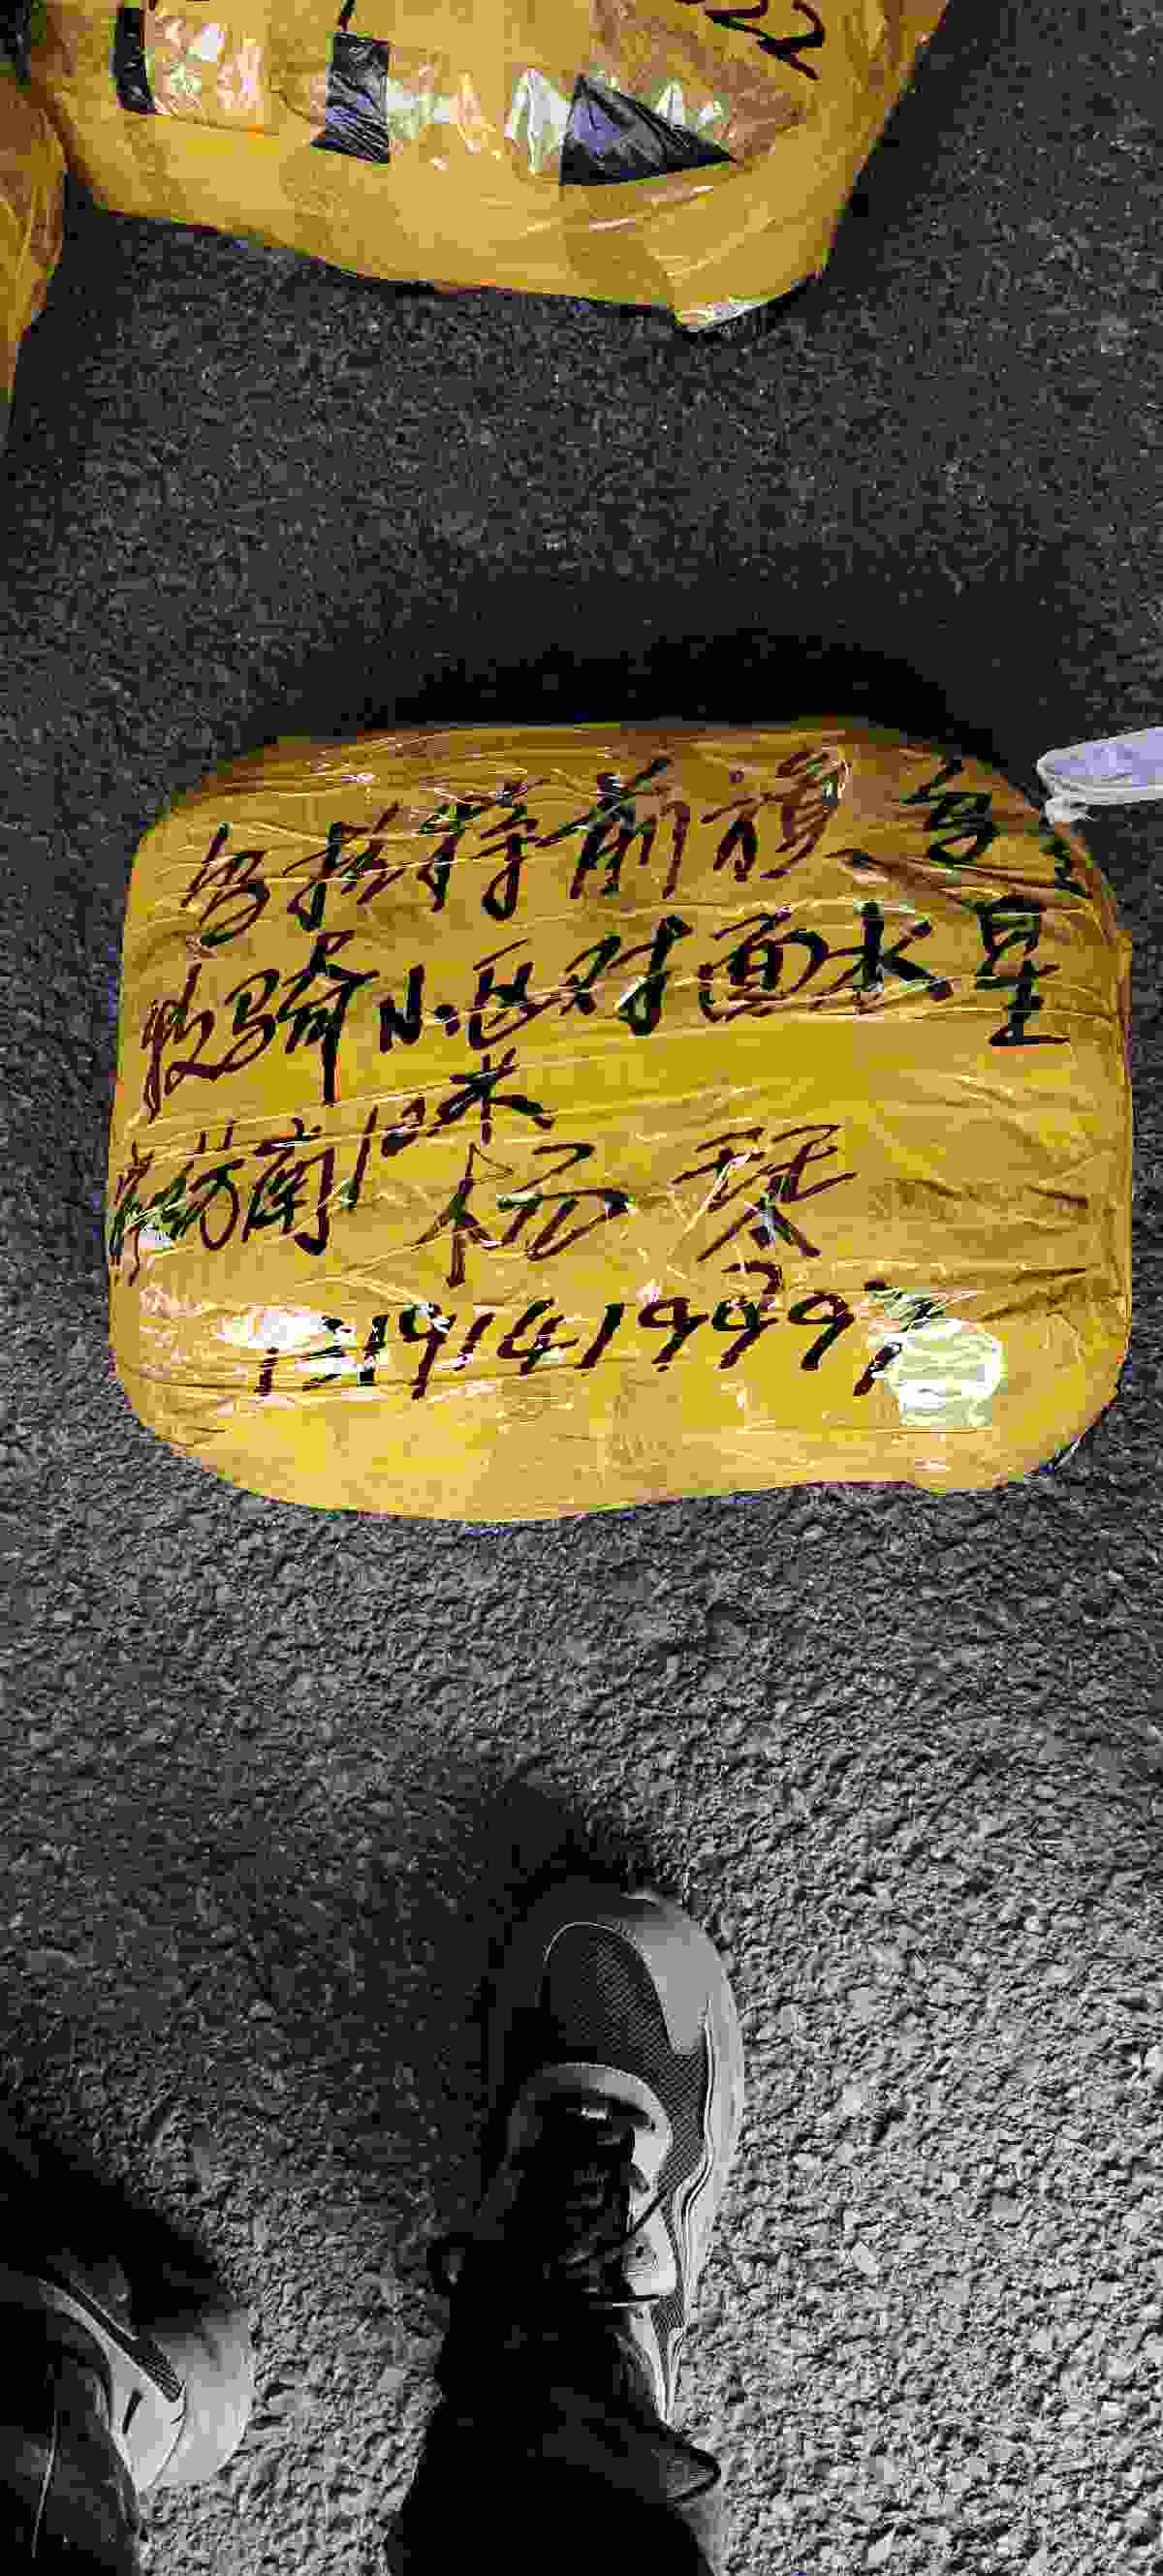 乌拉特前旗
骑小区对面水星
家纺南12米
杨 琴
13191419997